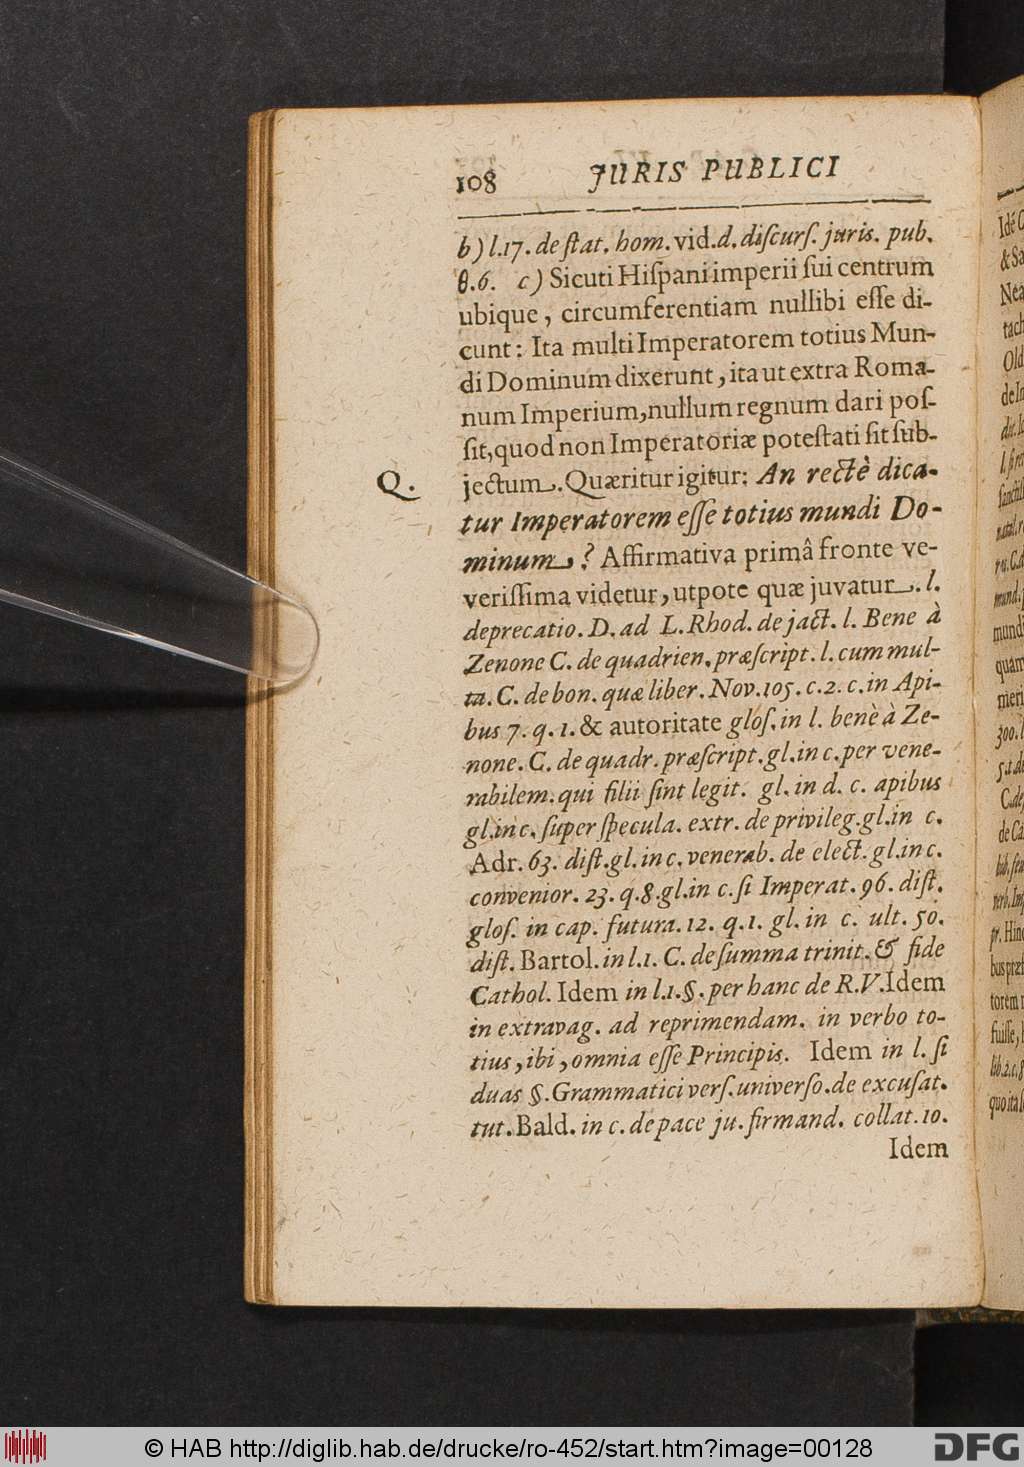 108 JURIS PUBLICI
b) l.17. de ſtat. hom. vid. d. diſcurſ. juris. pub.
θ.6. c) Sicuti Hiſpani imperii ſui centrum
ubique, circumferentiam nullibi eſſe di-
cunt: Ita multi Imperatorem totius Mun-
di Dominum dixerunt, ita ut extra Roma-
num Imperium, nullum regnum dari poſ-
ſit, quod non Imperatoriæ poteſtati ſit ſub-
Q. jectum. Quæritur igitur: An rectè dica-
tur Imperatorem eſſe totius mundi Do-
minum? Affirmativa primâ fronte ve-
veriſſima videtur, utpote quæ juvatur. l.
deprecatio. D. ad L. Rhod. de jact. l. Bene à
Zenone C. de quadrien. præſcript. l. cum mul-
ta. C. de bon. quæ liber. Nov. 105. c. 2. c. in Api-
bus 7. q. 1. & autoritate gloſ. in l. benè à Ze-
none. C. de quadr. præſcript. gl. in c. per vene-
rabilem. qui filii ſint legit. gl. in d. c. apibus
gl. in c. ſuper ſpecula. extr. de privileg. gl. in c.
Adr. 63. diſt. gl. in c. venerab. de elect. gl. in c.
convenior. 23. q. 8. gl. in c. ſi Imperat. 96. diſt.
gloſ. in cap. futura. 12. q. 1. gl. in c. ult. 50.
diſt. Bartol. in l. 1. C. de ſumma trinit. & fide
Cathol. Idem in l. 1. §. per hanc de R. V. Idem
in extravag. ad reprimendam. in verbo to-
tius, ibi, omnia eſſe Principis. Idem in l. ſi
duas §. Grammatici verſ. univerſo. de excuſat.
tut. Bald. in c. de pace ju. firmand. collat. 10.
Idem
© HAB http://diglib.hab.de/drucke/ro-452/start.htm?image=00128
DFG